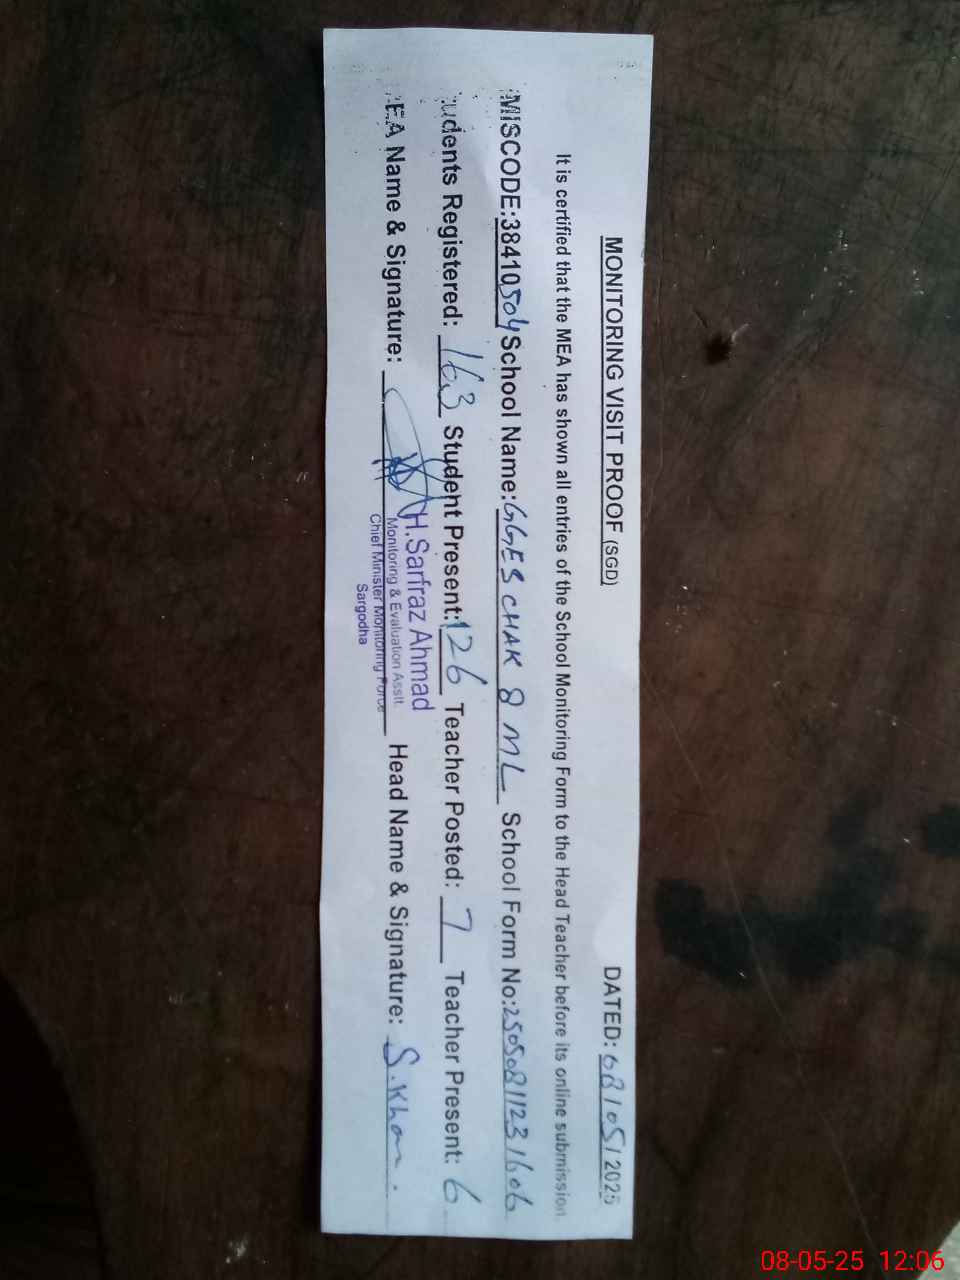 MONITORING VISIT PROOF (SGD) DATED: 08/05/2025
It is certified that the MEA has shown all entries of the School Monitoring Form to the Head Teacher before its online submission
EMISCODE:38410504 School Name: GGES CHAK 8 ML School Form No:25050811231606
Students Registered: 163 Student Present: 126 Teacher Posted: 7 Teacher Present: 6
MEA Name & Signature: Head Name & Signature: S.Khan.
H.Sarfraz Ahmad
Monitoring & Evaluation Asstt.
Chief Minister Monitoring Force
Sargodha
08-05-25 12:06